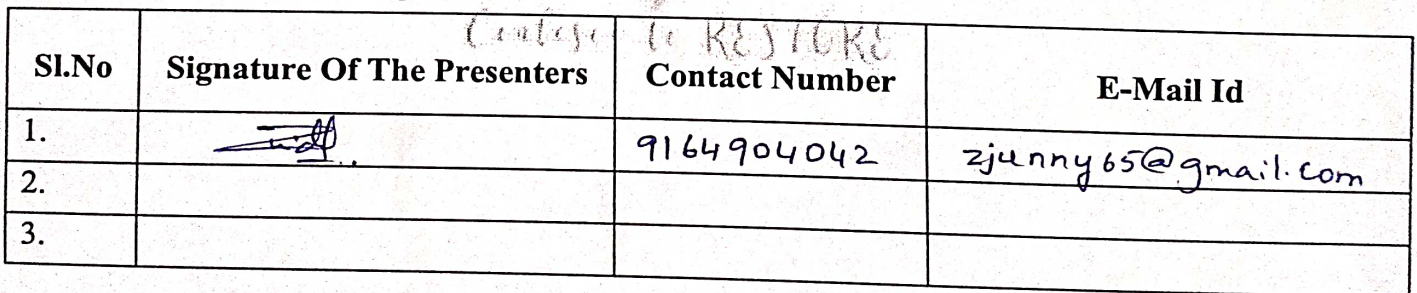 Sl.No Signature Of The Presenters Contact Number E-Mail Id
1. 9164904042 zjunny65@gmail.com
2.
3.